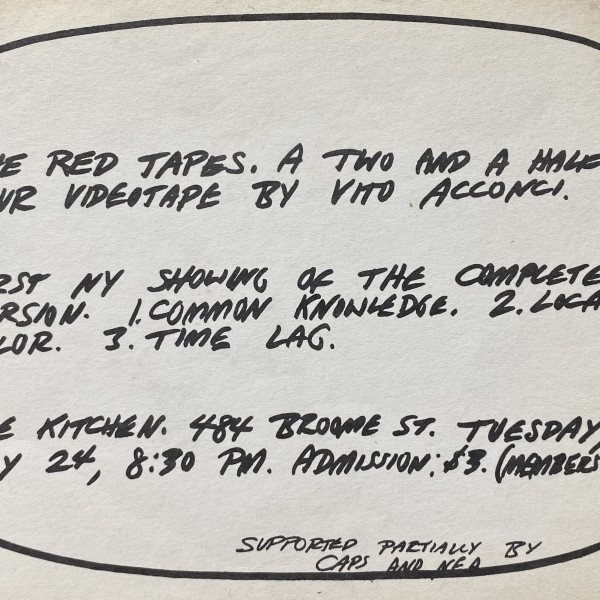 HE RED TAPES. A TWO AND A HALF
UR VIDEOTAPE BY VITO ACCONCI.
RST NY SHOWING OF THE COMPLETE
ERSION. 1. COMMON KNOWLEDGE. 2. LOCA
LOR. 3. TIME LAG.
E KITCHEN. 484 BROOME ST. TUESDAY,
Y 24, 8:30 PM. ADMISSION: $3. (MEMBERS
SUPPORTED PARTIALLY BY
CAPS AND NEA